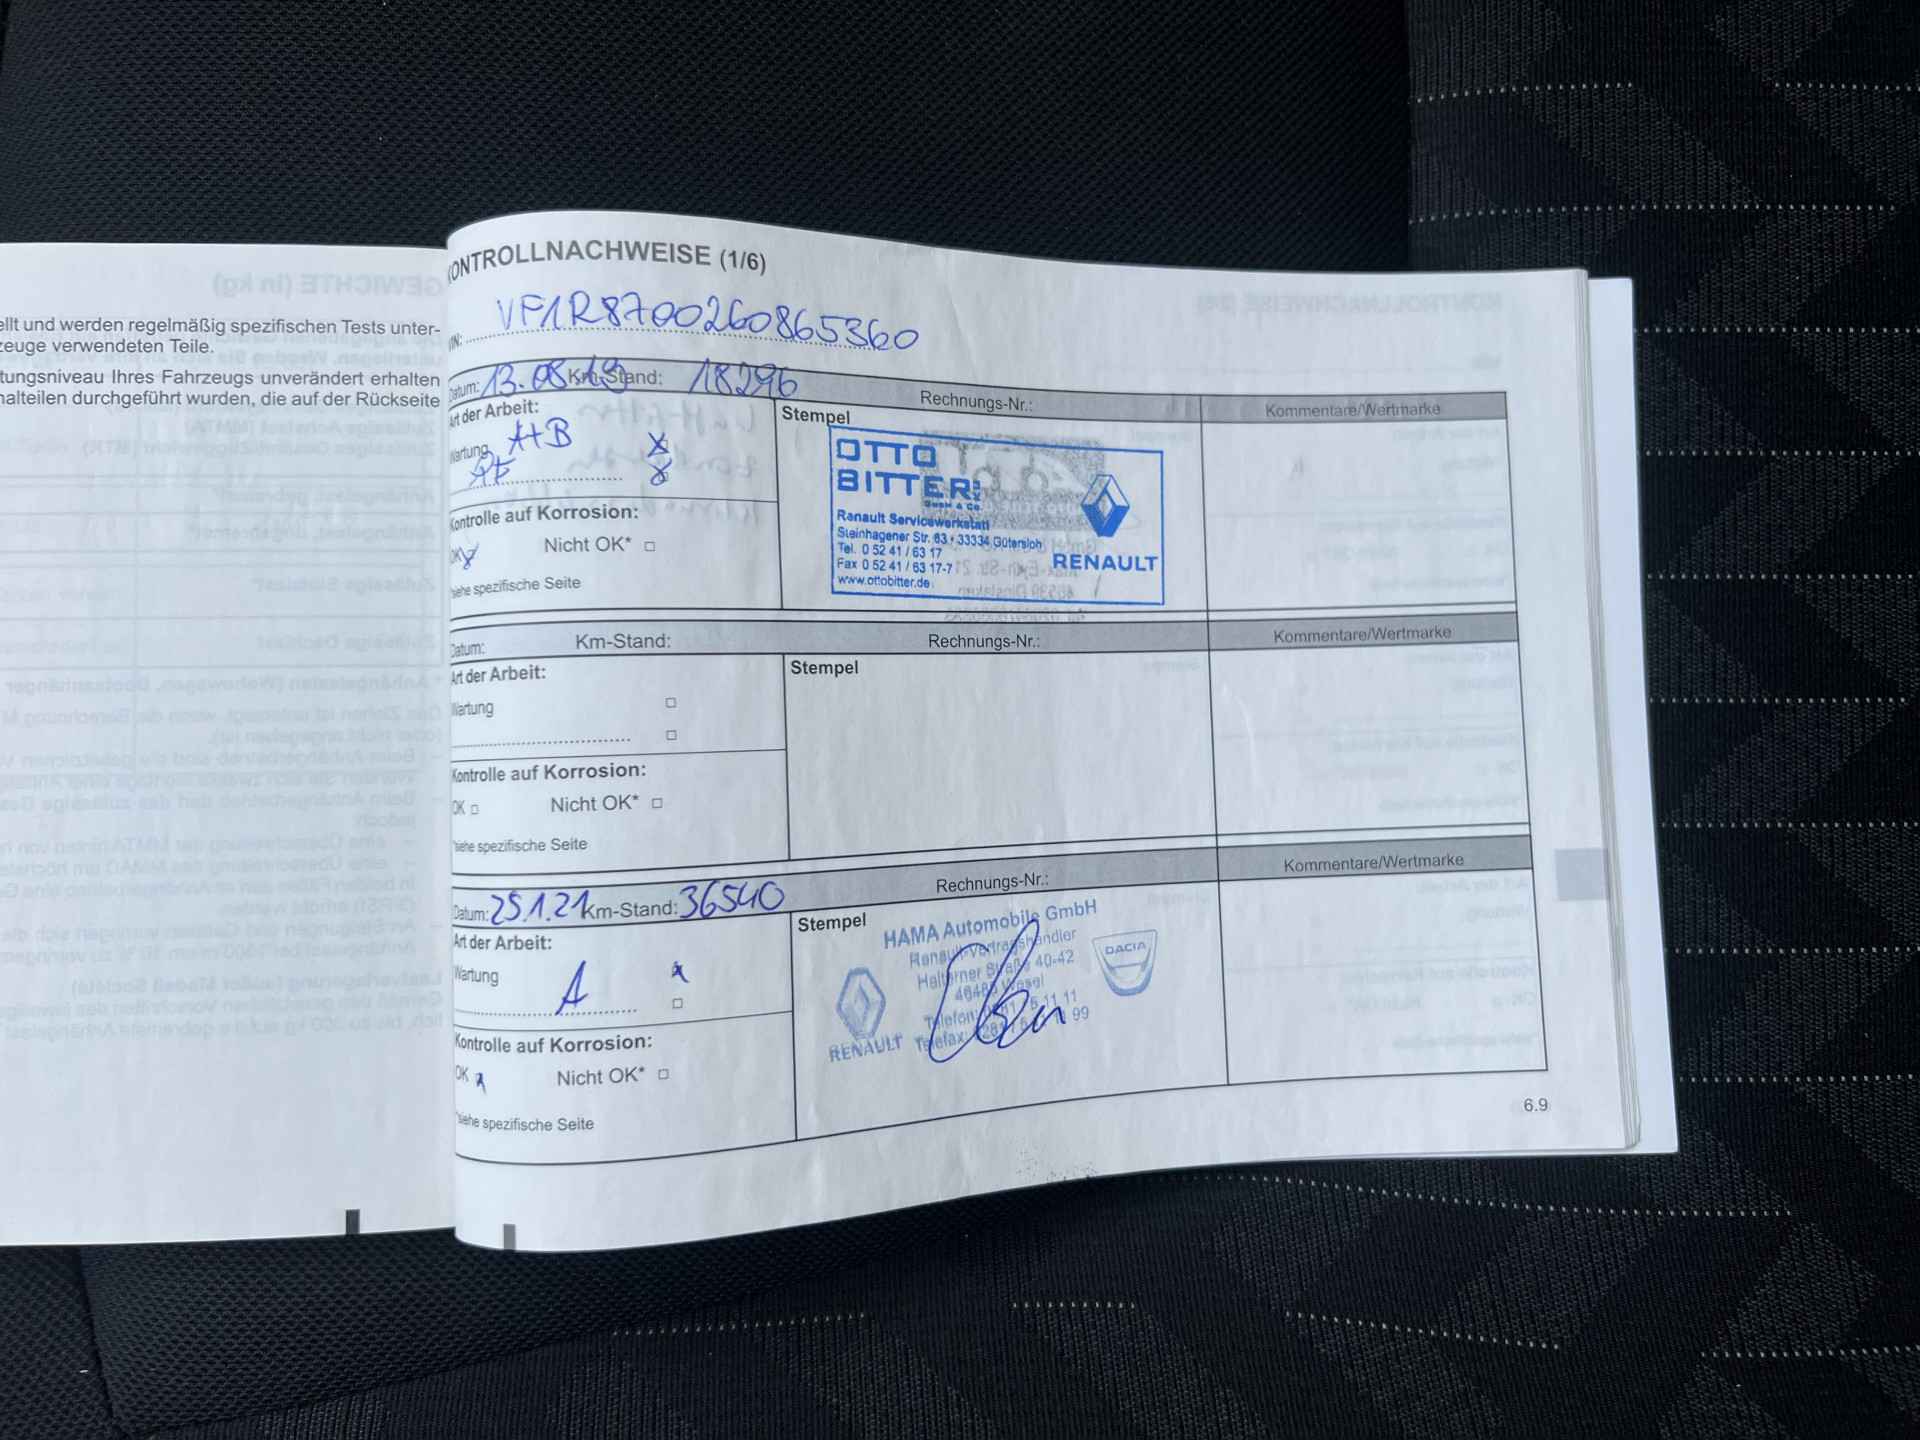 ellt und werden regelmäßig spezifischen Tests unter-
zeuge verwendeten Teile.
tungsniveau Ihres Fahrzeugs unverändert erhalten
nalteilen durchgeführt wurden, die auf der Rückseite
KONTROLLNACHWEISE (1/6)
VIN: VF1R8700260865360
Datum: 13.08.19 Km-Stand: 18296 Rechnungs-Nr.: Kommentare/Wertmarke
Art der Arbeit:
Wartung A+B
Kontrolle auf Korrosion:
OK Nicht OK*
*siehe spezifische Seite
Stempel
OTTO
BITTER
GmbH & Co.
Renault Servicewerkstatt
Steinhagener Str. 63 · 33334 Gütersloh
Tel. 0 52 41 / 63 17
Fax 0 52 41 / 63 17-7
www.ottobitter.de
RENAULT
Datum: Km-Stand: Rechnungs-Nr.: Kommentare/Wertmarke
Art der Arbeit:
Wartung
Kontrolle auf Korrosion:
OK Nicht OK*
*siehe spezifische Seite
Stempel
Datum: 25.1.21 Km-Stand: 36540 Rechnungs-Nr.: Kommentare/Wertmarke
Art der Arbeit:
Wartung
A
Kontrolle auf Korrosion:
OK Nicht OK*
*siehe spezifische Seite
Stempel
HAMA Automobile GmbH
Renault-Vertragshändler
Halterner Straße 40-42
46485 Wesel
RENAULT
DACIA
6.9